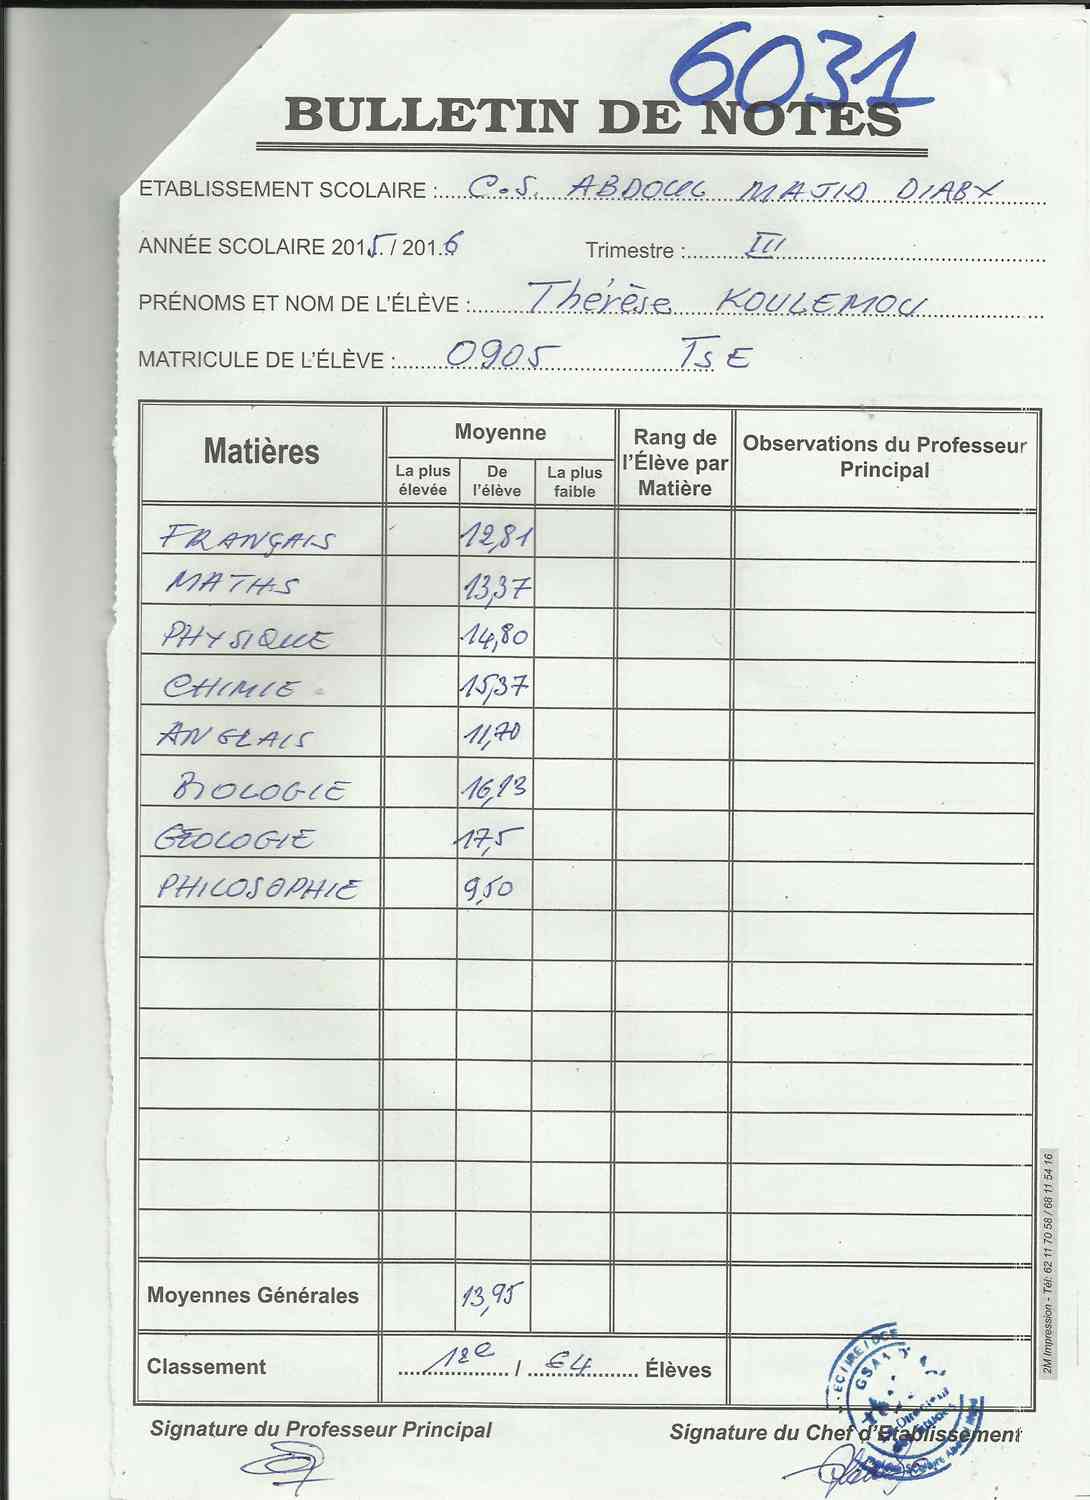 6031
BULLETIN DE NOTES
ETABLISSEMENT SCOLAIRE : C.S. ABDOUL MAJID DIABY
ANNÉE SCOLAIRE 2015 / 2016 Trimestre : III
PRÉNOMS ET NOM DE L'ÉLÈVE : Thérèse KOULEMOU
MATRICULE DE L'ÉLÈVE : 0905 TSE
Matières Moyenne Rang de l'Élève par Matière Observations du Professeur Principal
La plus élevée De l'élève La plus faible
FRANÇAIS 12,81
MATHS 13,37
PHYSIQUE 14,80
CHIMIE 15,37
ANGLAIS 11,70
BIOLOGIE 16,13
GEOLOGIE 17,5
PHILOSOPHIE 9,50
Moyennes Générales 13,95
Classement / 64 Élèves
Signature du Professeur Principal Signature du Chef d'Etablissement
2M Impression - Tél: 62 11 70 58 / 68 11 54 16